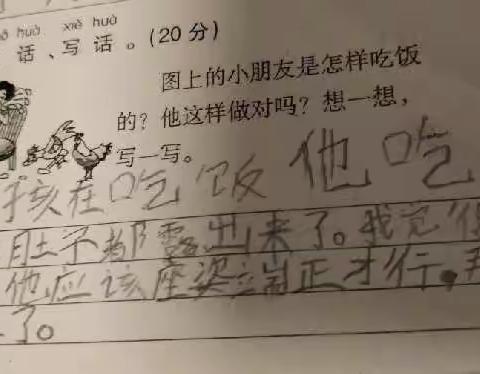 huà xiě huà
话、写话。(20分)
图上的小朋友是怎样吃饭
的？他这样做对吗？想一想，
写一写。
孩在吃饭他吃
肚子都露出来了。我觉
他应该座姿端正才行。
了。